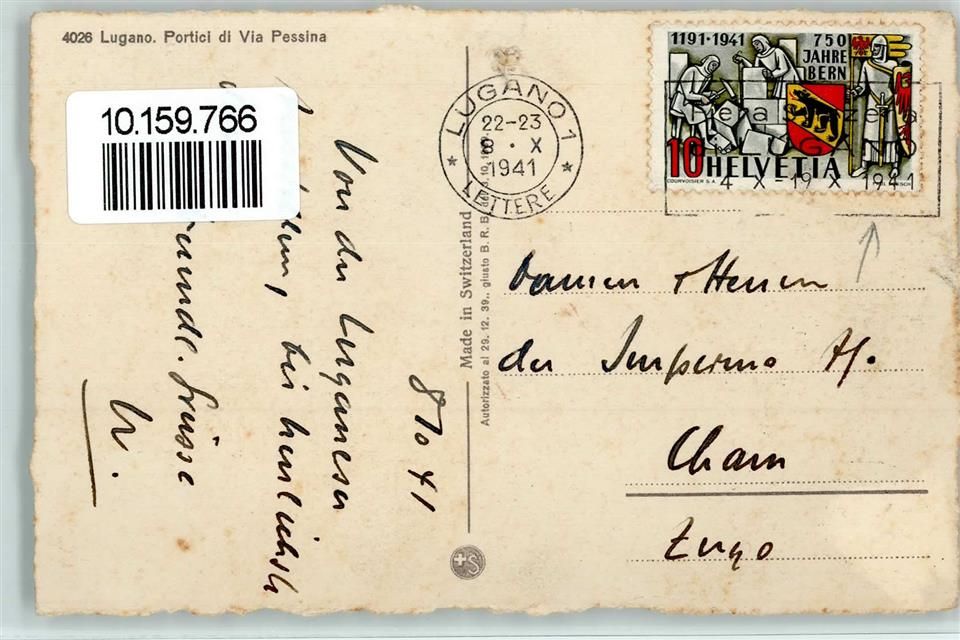 4026 Lugano. Portici di Via Pessina
10.159.766
Von der Luganeser
bis herzlichst
freundl. Grüsse
W.
8 10 41
Made in Switzerland
Autorizzato al 29. 12. 39., giusto B. R. B.
LUGANO 1
22-23
8 · X
1941
LETTERE
1191·1941
750
JAHRE
BERN
10 HELVETIA
COURVOISIER S.A.
LUGANO
4 X-19 X 1941
Damen & Herren
der Imprimo A.
Cham
Zugo